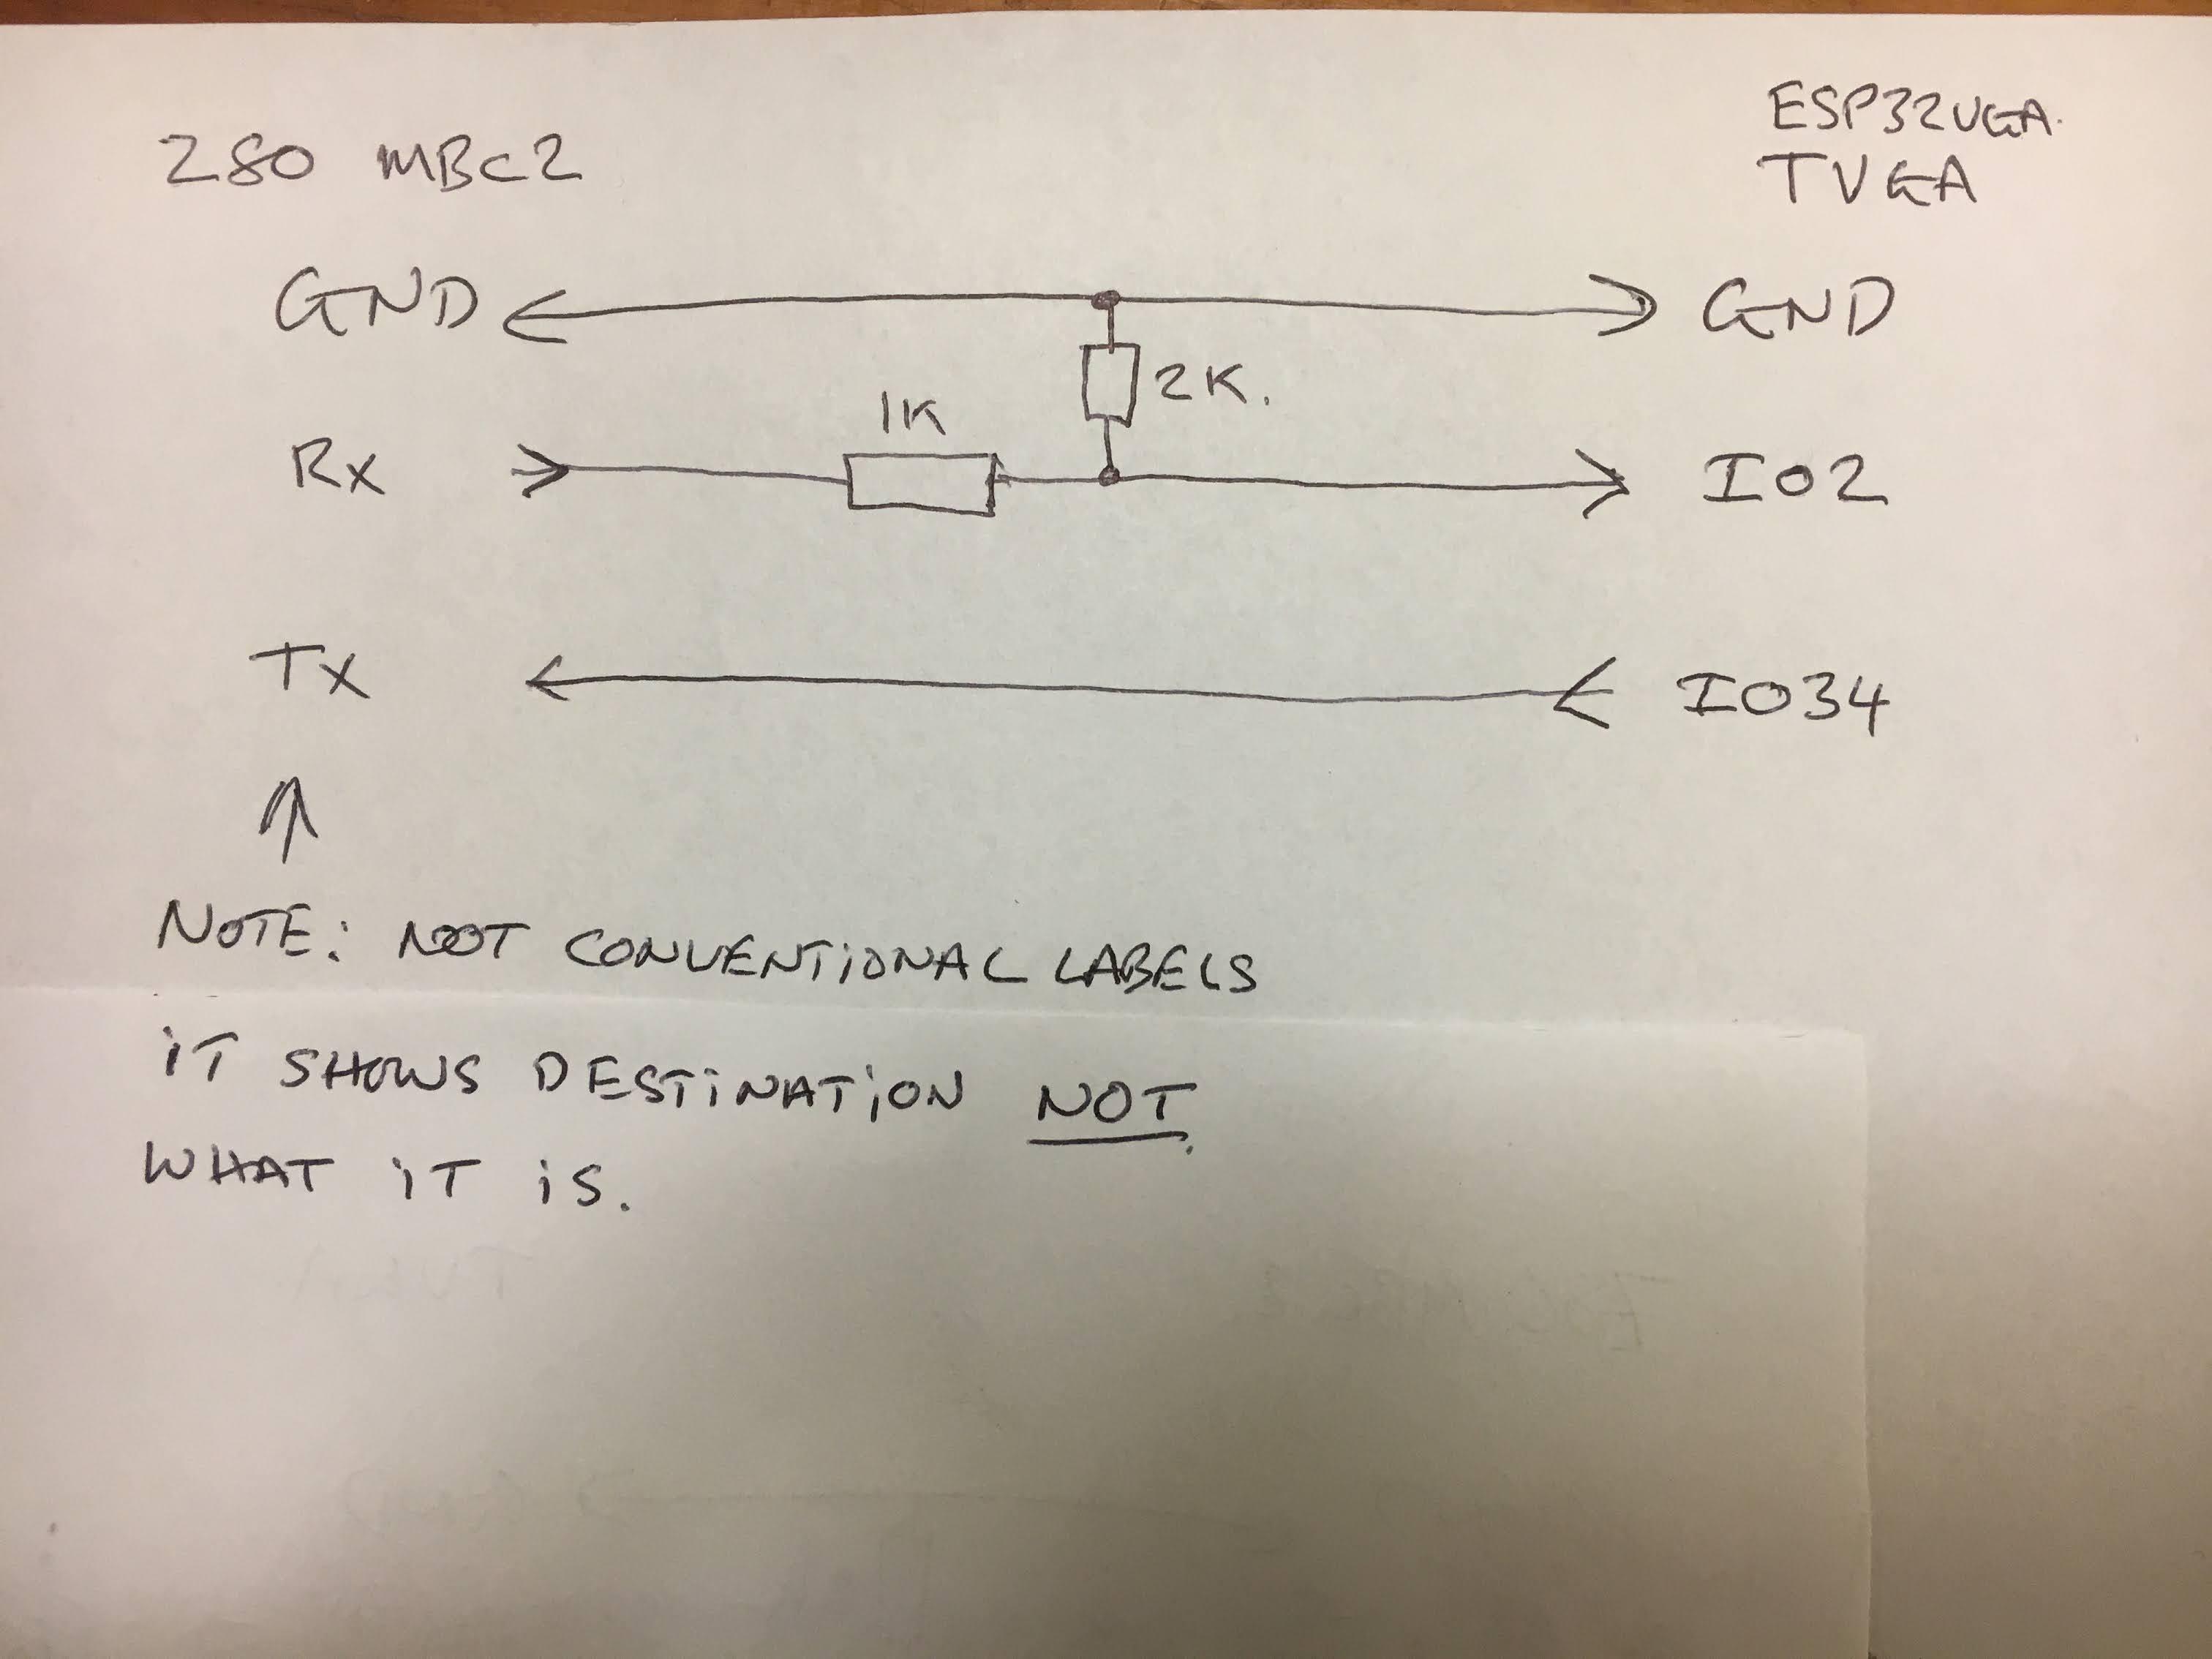 Z80 MBC2
ESP32VGA.
TVGA
GND
GND
2K.
1K
Rx
IO2
Tx
IO34
NOTE: NOT CONVENTIONAL LABELS
iT SHOWS DESTiNATiON NOT
WHAT iT iS.